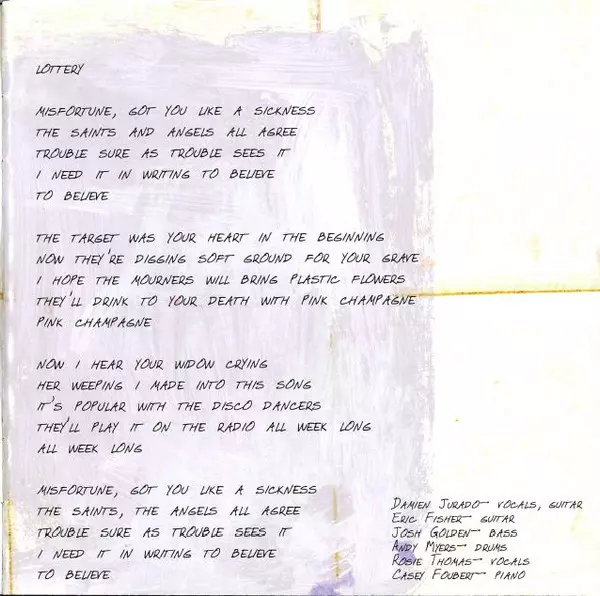 LOTTERY
MISFORTUNE, GOT YOU LIKE A SICKNESS
THE SAINTS AND ANGELS ALL AGREE
TROUBLE SURE AS TROUBLE SEES IT
I NEED IT IN WRITING TO BELIEVE
TO BELIEVE
THE TARGET WAS YOUR HEART IN THE BEGINNING
NOW THEY'RE DIGGING SOFT GROUND FOR YOUR GRAVE
I HOPE THE MOURNERS WILL BRING PLASTIC FLOWERS
THEY'LL DRINK TO YOUR DEATH WITH PINK CHAMPAGNE
PINK CHAMPAGNE
NOW I HEAR YOUR WIDOW CRYING
HER WEEPING I MADE INTO THIS SONG
IT'S POPULAR WITH THE DISCO DANCERS
THEY'LL PLAY IT ON THE RADIO ALL WEEK LONG
ALL WEEK LONG
MISFORTUNE, GOT YOU LIKE A SICKNESS
THE SAINTS, THE ANGELS ALL AGREE
TROUBLE SURE AS TROUBLE SEES IT
I NEED IT IN WRITING TO BELIEVE
TO BELIEVE
DAMIEN JURADO— VOCALS, GUITAR
ERIC FISHER— GUITAR
JOSH GOLDEN— BASS
ANDY MYERS— DRUMS
ROSIE THOMAS— VOCALS
CASEY FOUBERT— PIANO